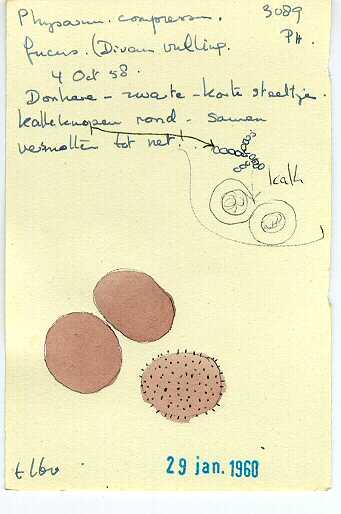 Physarum compressum. 3089
fucus. (Divan vulling. PH.
4 Oct 58.
Donkere - zwarte - korte steeltje.
kalkknopen rond - samen
versmolten tot net!
kalk
29 jan. 1960